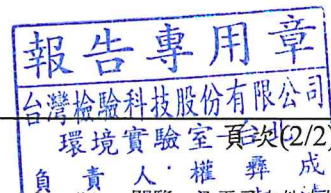 報告專用章
台灣檢驗科技股份有限公司
環境實驗室-台北
頁次(2/2)
負責人:權彝成